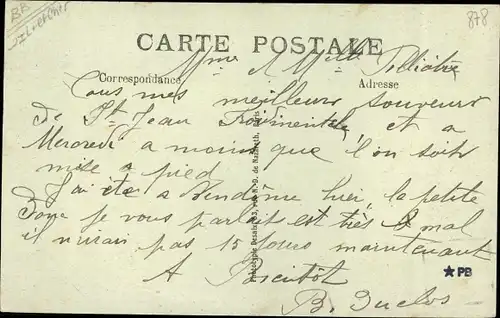 BB
878
CARTE POSTALE
Mme & Melle
Correspondance
Adresse
Tous mes meilleurs souvenirs
de St Jean et a
Mercredi a moins que l'on soit
mise a pied
J'ai été a Vendôme hier, la petite
dont je vous parlais est très mal
il n'irai pas 15 jours maintenant
A Bientôt
B. Duclos
★PB